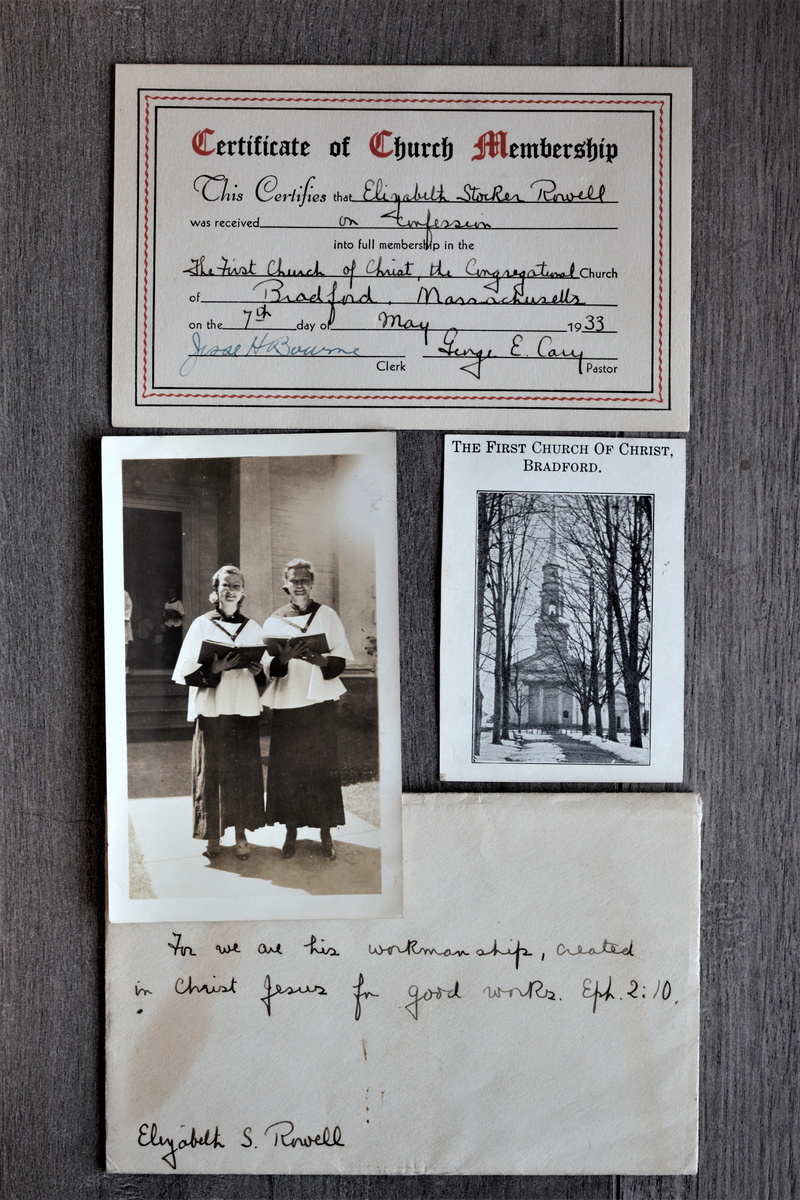 Certificate of Church Membership
This Certifies that Elizabeth Stocker Rowell
was received on Confession
into full membership in the
The First Church of Christ, the Congregational Church
of Bradford, Massachusetts
on the 7th day of May 1933
Jesse H Bourne George E. Cary
Clerk Pastor
THE FIRST CHURCH OF CHRIST,
BRADFORD.
For we are his workmanship, created
in Christ Jesus for good works. Eph. 2:10.
Elizabeth S. Rowell